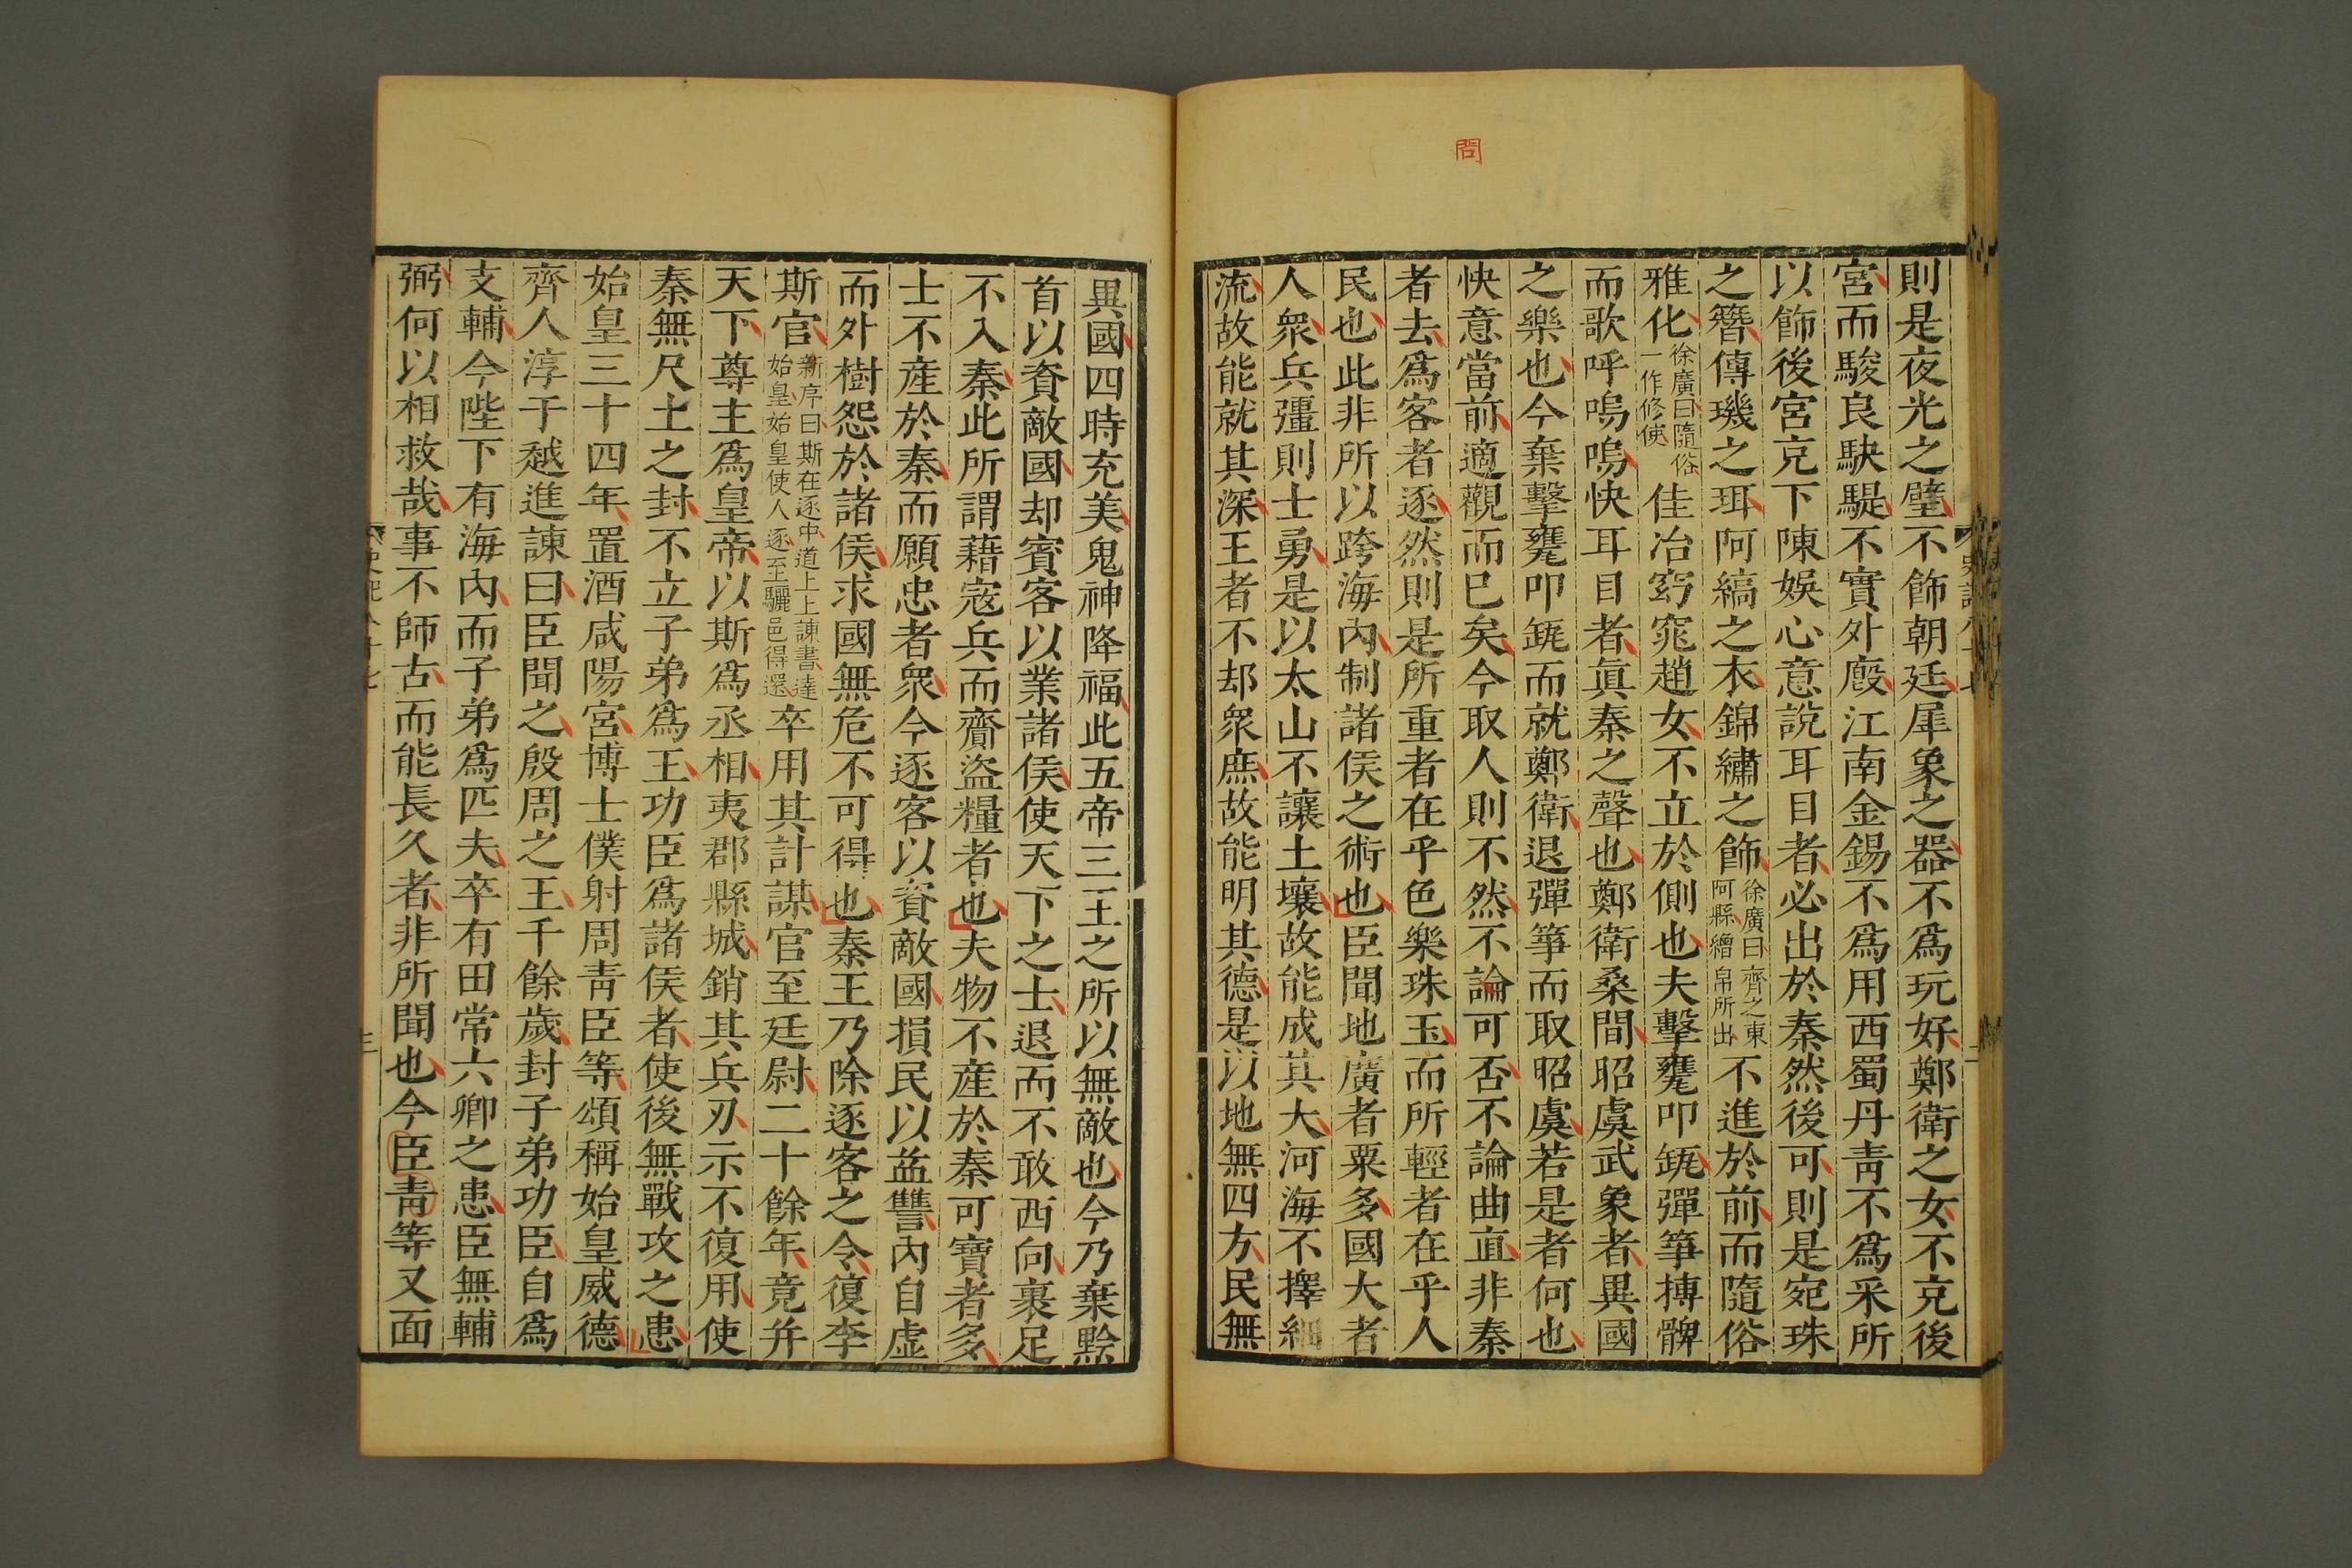 問
則是夜光之璧不飾朝廷犀象之器不爲玩好鄭衛之女不充後
宮而駿良駃騠不實外廄江南金錫不爲用西蜀丹青不爲采所
以飾後宮充下陳娛心意說耳目者必出於秦然後可則是宛珠
之簪傅璣之珥阿縞之衣錦繡之飾徐廣曰齊之東阿縣繒帛所出不進於前而隨俗
雅化徐廣曰隨俗一作修使佳冶窈窕趙女不立於側也夫擊甕叩缻彈箏搏髀
而歌呼嗚嗚快耳目者眞秦之聲也鄭衛桑間昭虞武象者異國
之樂也今棄擊甕叩缻而就鄭衛退彈箏而取昭虞若是者何也
快意當前適觀而已矣今取人則不然不論可否不論曲直非秦
者去爲客者逐然則是所重者在乎色樂珠玉而所輕者在乎人
民也此非所以跨海內制諸侯之術也臣聞地廣者粟多國大者
人衆兵彊則士勇是以太山不讓土壤故能成其大河海不擇細
流故能就其深王者不却衆庶故能明其德是以地無四方民無
異國四時充美鬼神降福此五帝三王之所以無敵也今乃棄黔
首以資敵國却賓客以業諸侯使天下之士退而不敢西向裹足
不入秦此所謂藉寇兵而齎盜糧者也夫物不產於秦可寶者多
士不產於秦而願忠者衆今逐客以資敵國損民以益讐內自虛
而外樹怨於諸侯求國無危不可得也秦王乃除逐客之令復李
斯官新序曰斯在逐中道上上諫書達始皇始皇使人逐至驪邑得還卒用其計謀官至廷尉二十餘年竟并
天下尊主爲皇帝以斯爲丞相夷郡縣城銷其兵刃示不復用使
秦無尺土之封不立子弟爲王功臣爲諸侯者使後無戰攻之患
始皇三十四年置酒咸陽宮博士僕射周靑臣等頌稱始皇威德
齊人淳于越進諫曰臣聞之殷周之王千餘歲封子弟功臣自爲
支輔今陛下有海內而子弟爲匹夫卒有田常六卿之患臣無輔
弼何以相救哉事不師古而能長久者非所聞也今臣靑等又面